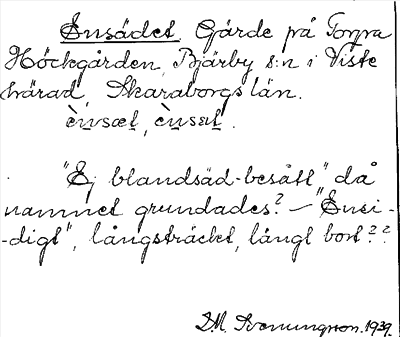 Ensädet Gärde på Torpa
Höckgården, Bjärby s:n i Viste
härad, Skaraborgs län.
èn̠sæt, èn̠sɛt.
"Ej blandsäd-besått" då
namnet grundades? – "Ensi-
-digt", långsträckt, långt bort??
D.M. Svenungson. 1939.